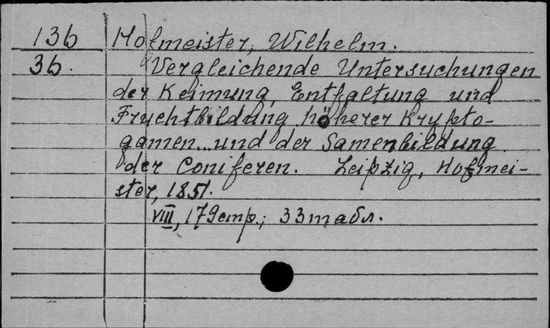 136 Hofmeister, Wilhelm.
36. Vergleichende Untersuchungen
der Keimung, Entfaltung und
Fruchtbildung höherer Krypto-
gamen... und der Samenbildung
der Coniferen. Leipzig, Hofmei-
ster, 1851.
VIII, 179 стр.; 33 табл.